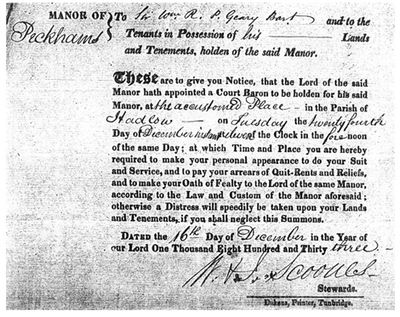 MANOR OF } To Sir Wm. R. P. Geary Bart and to the
Peckhams } Tenants in Possession of his Lands
and Tenements, holden of the said Manor.
These are to give you Notice, that the Lord of the said
Manor hath appointed a Court Baron to be holden for his said
Manor, at the accustomed Place in the Parish of
Hadlow on Tuesday the twenty fourth
Day of December inst. at eleven of the Clock in the fore noon
of the same Day; at which Time and Place you are hereby
required to make your personal appearance to do your Suit
and Service, and to pay your arrears of Quit-Rents and Reliefs,
and to make your Oath of Fealty to the Lord of the same Manor,
according to the Law and Custom of the Manor aforesaid;
otherwise a Distress will speedily be taken upon your Lands
and Tenements, if you shall neglect this Summons.
DATED the 16th Day of December in the Year of
our Lord One Thousand Eight Hundred and Thirty three
Scoones
Stewards.
Dakens, Printer, Tunbridge.